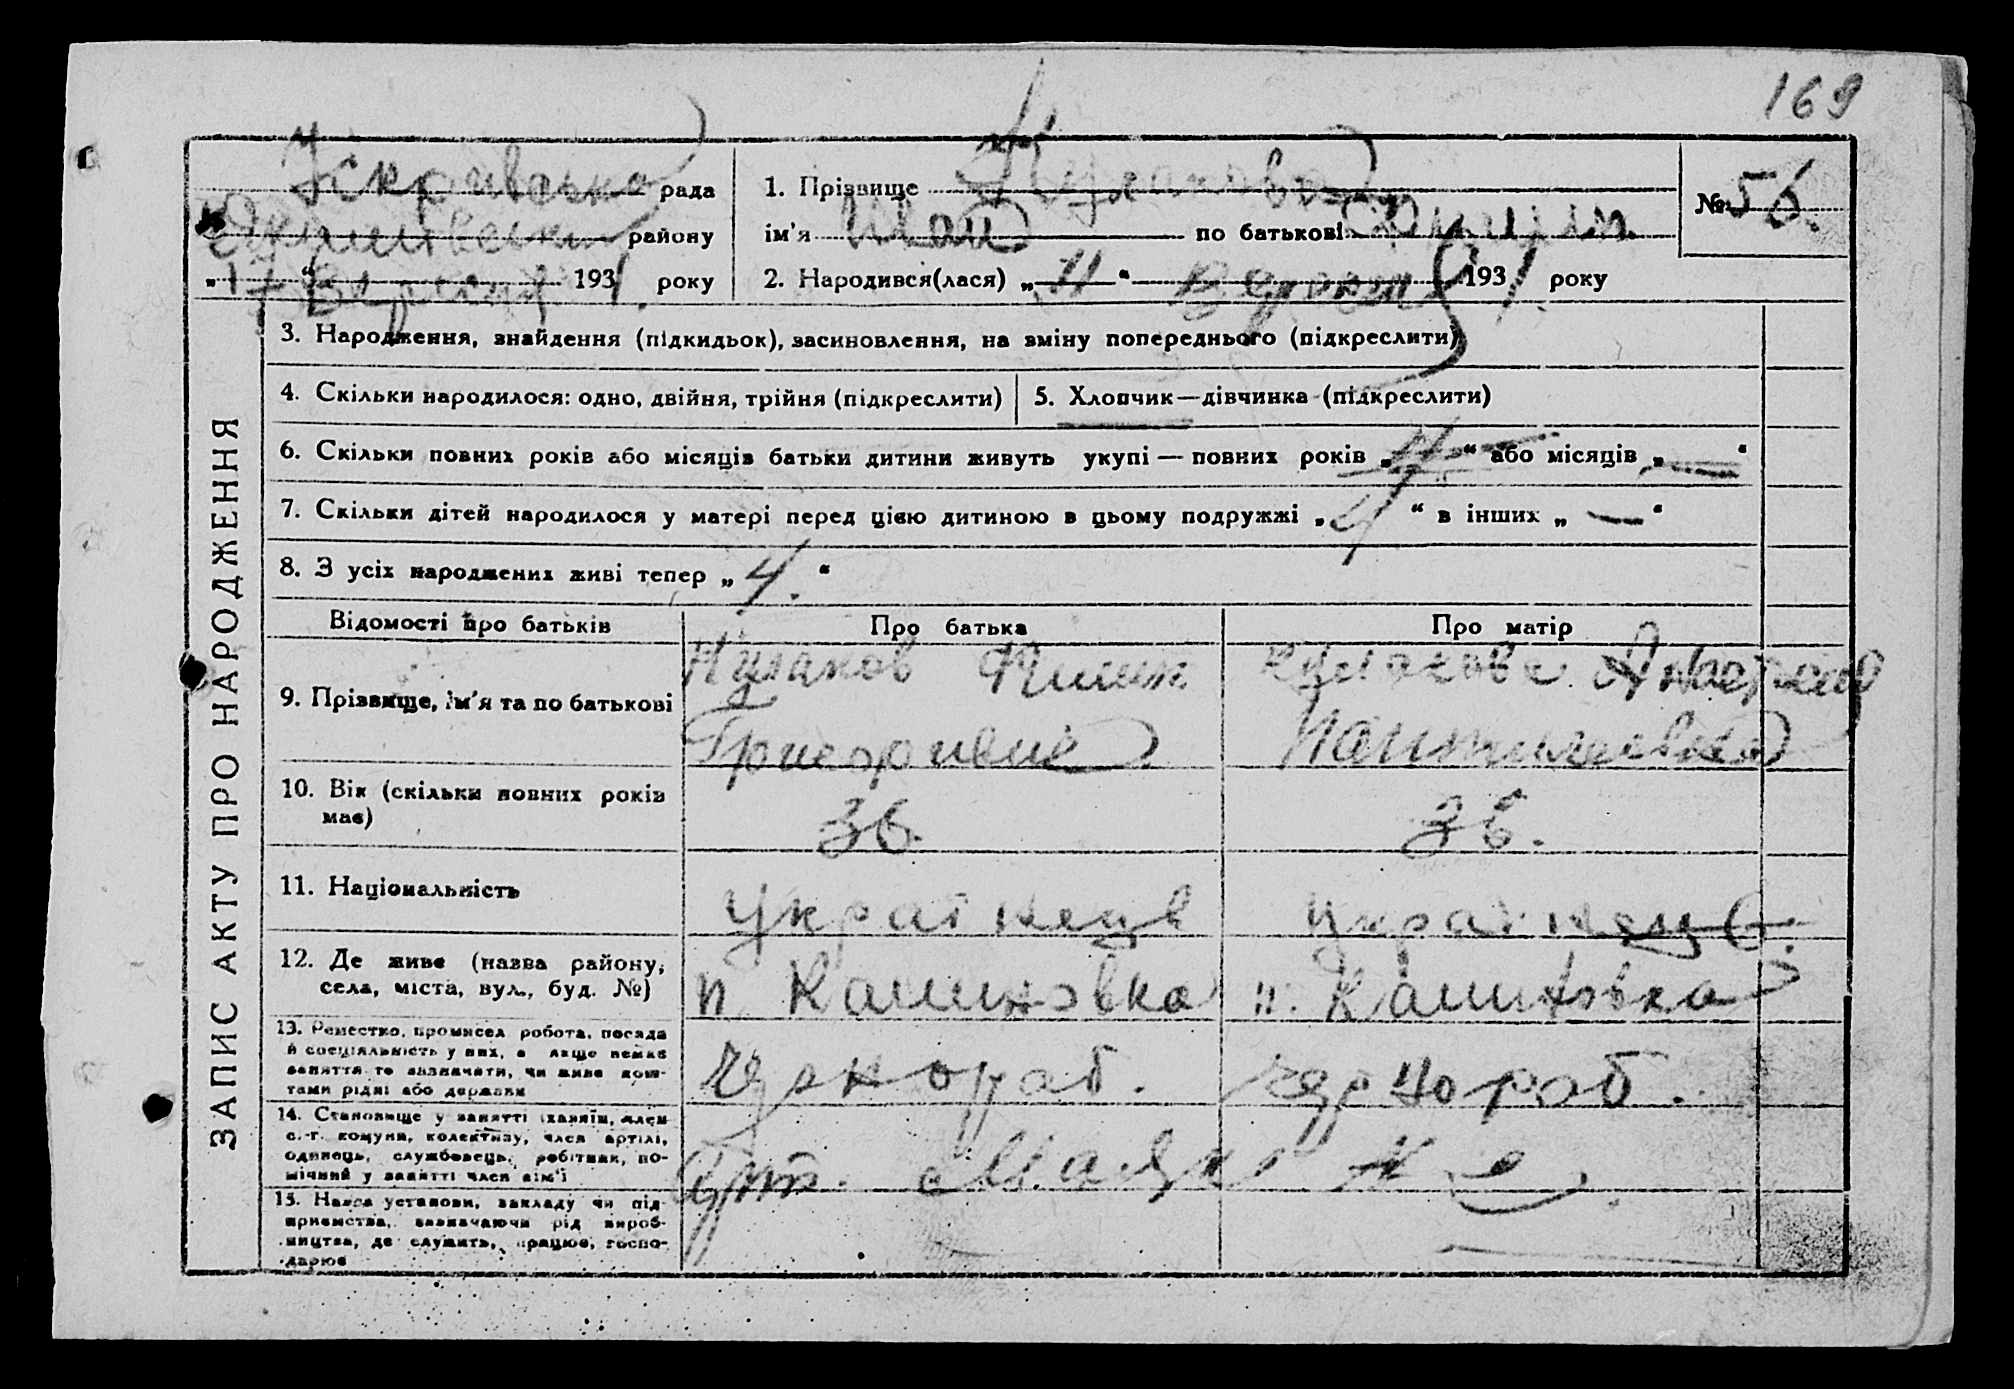 169
Іскрівська рада
району
„17“ Вересня 1931 року
1. Прізвище Кулакова
ім'я Іван по батькові
№ 56.
2. Народився(лася) „11“ Вересня 1931 року
3. Народження, знайдення (підкидьок), засиновлення, на зміну попереднього (підкреслити)
4. Скільки народилося: одно, двійня, трійня (підкреслити)
5. Хлопчик—дівчинка (підкреслити)
6. Скільки повних років або місяців батьки дитини живуть укупі — повних років „11“ або місяців „—“
7. Скільки дітей народилося у матері перед цією дитиною в цьому подружжі „4“ в інших „—“
8. З усіх народжених живі тепер „4.“
Відомості про батьків
Про батька
Про матір
9. Прізвище, ім'я та по батькові
Кулаков Пилип
Григоривич
Кулакова
10. Вік (скільки повних років
має)
36.
36.
11. Національність
Українець
Українець
12. Де живе (назва району,
села, міста, вул., буд. №)
п. Калиновка
п. Калиновка
13. Ремество, промисел робота, посада
й спеціяльність у них, а якще немає
заняття то зазначити, чи живе кош-
тами рідні або держави
Чорнораб.
Чорнораб.
14. Становище у занятті (хазяїн, член
с.-г. комуни, колективу, член артілі,
одинець, службовець, робітник, по-
мічний у занятті член сім'ї
15. Назва установи, закладу чи під-
приємства, зазначаючи рід вироб-
ництва, де служить, працює, госпо-
дарює
ЗАПИС АКТУ ПРО НАРОДЖЕННЯ